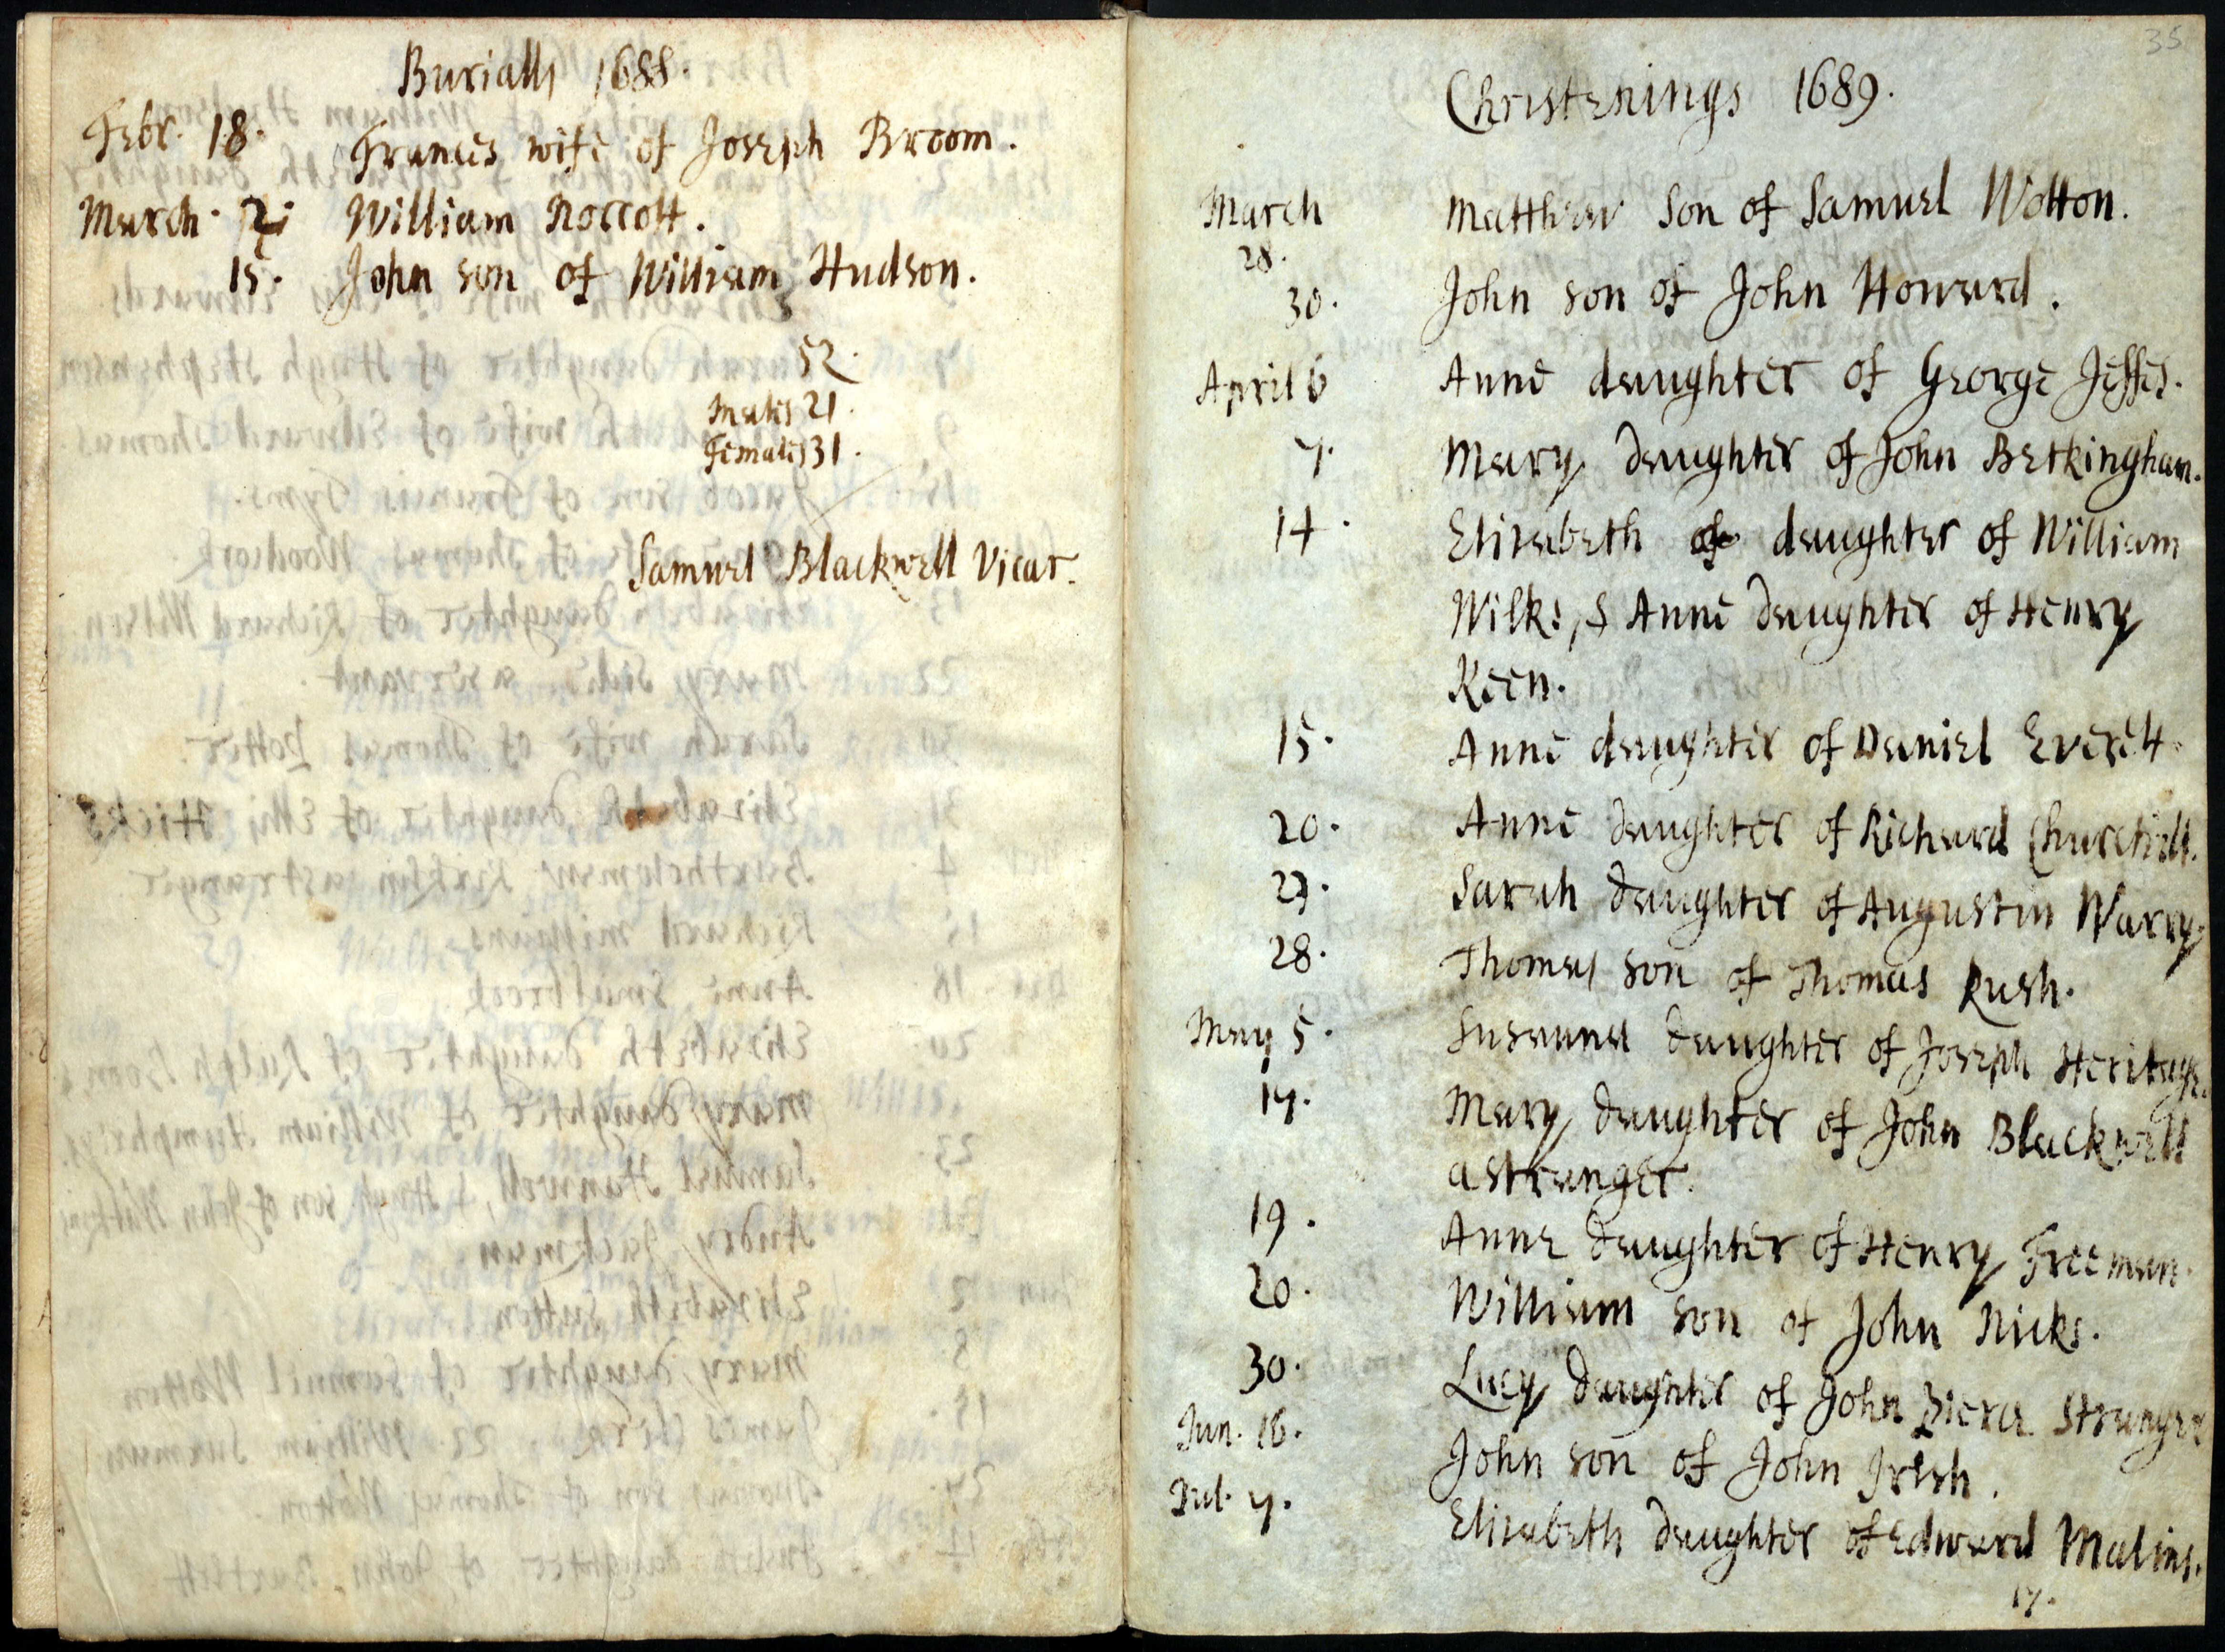 Burialls 1688.
Febr. 18. Frances wife of Joseph Broom.
March. William Norcott.
15. John son of William Hudson.
52.
Males 21.
Females 31.
Samuel Blackwell Vicar.
35
Christenings 1689.
March Matthew Son of Samuel Wotton.
28.
30. John son of John Howard.
April 6 Anne daughter of George Jeffes.
7. Mary daughter of John Betkingham.
14. Elizabeth daughter of William
Wilks, & Anne daughter of Henry
Keen.
15. Anne daughter of Daniel Everett.
20. Anne daughter of Richard Churchill.
Sarah daughter of Augustin Warry.
28. Thomas son of Thomas Rush.
May 5. Susanna daughter of Joseph Heritage.
17. Mary daughter of John Blackwell
a stranger.
19. Anne daughter of Henry Freeman.
20. William son of John Nicks.
30. Lucy daughter of John Pierce Stranger
Jun. 16. John son of John Irish.
Jul. 7. Elizabeth daughter of Edward Malins.
17.